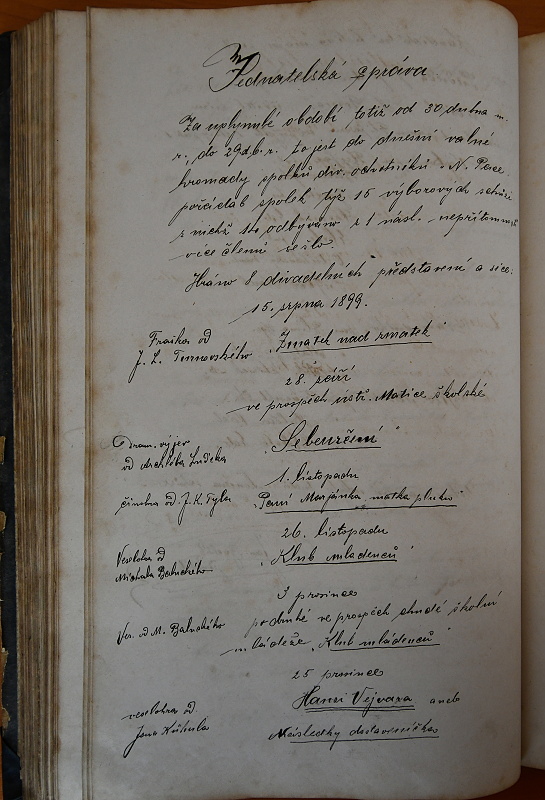 Jednatelská zpráva
Za uplynulé období, totiž od 30 dubna m.
r. do 29. d.b.r. to jest do dnešní valné
hromady spolku div. ochotníků "N. Pace
pořádal spolek týž 15 výborových schůzí
z nichž 14 odbýváno a 1 násl. nepřítomnosti
více členů sešlo.
Hráno 8 divadelních představení a sice:
15. srpna 1899.
Fraška od
J. L. Turnovského
"Zmatek nad zmatek"
28. září
ve prospěch ústř. Matice školské
dram. výjev
od
"Sebeurčení"
1. listopadu
činohra od J. K. Tyla
"Paní Marjánka matka pluku"
26. listopadu
Veselohra od
Michala Baluckého
"Klub mládenců"
3 prosince
Ves. od M. Baluckého
podruhé ve prospěch chudé školní
mládeže "Klub mládenců"
25 prosince
veselohra od
Jana Kühnla
Hansi Vejvara aneb
Následky dostaveníčka